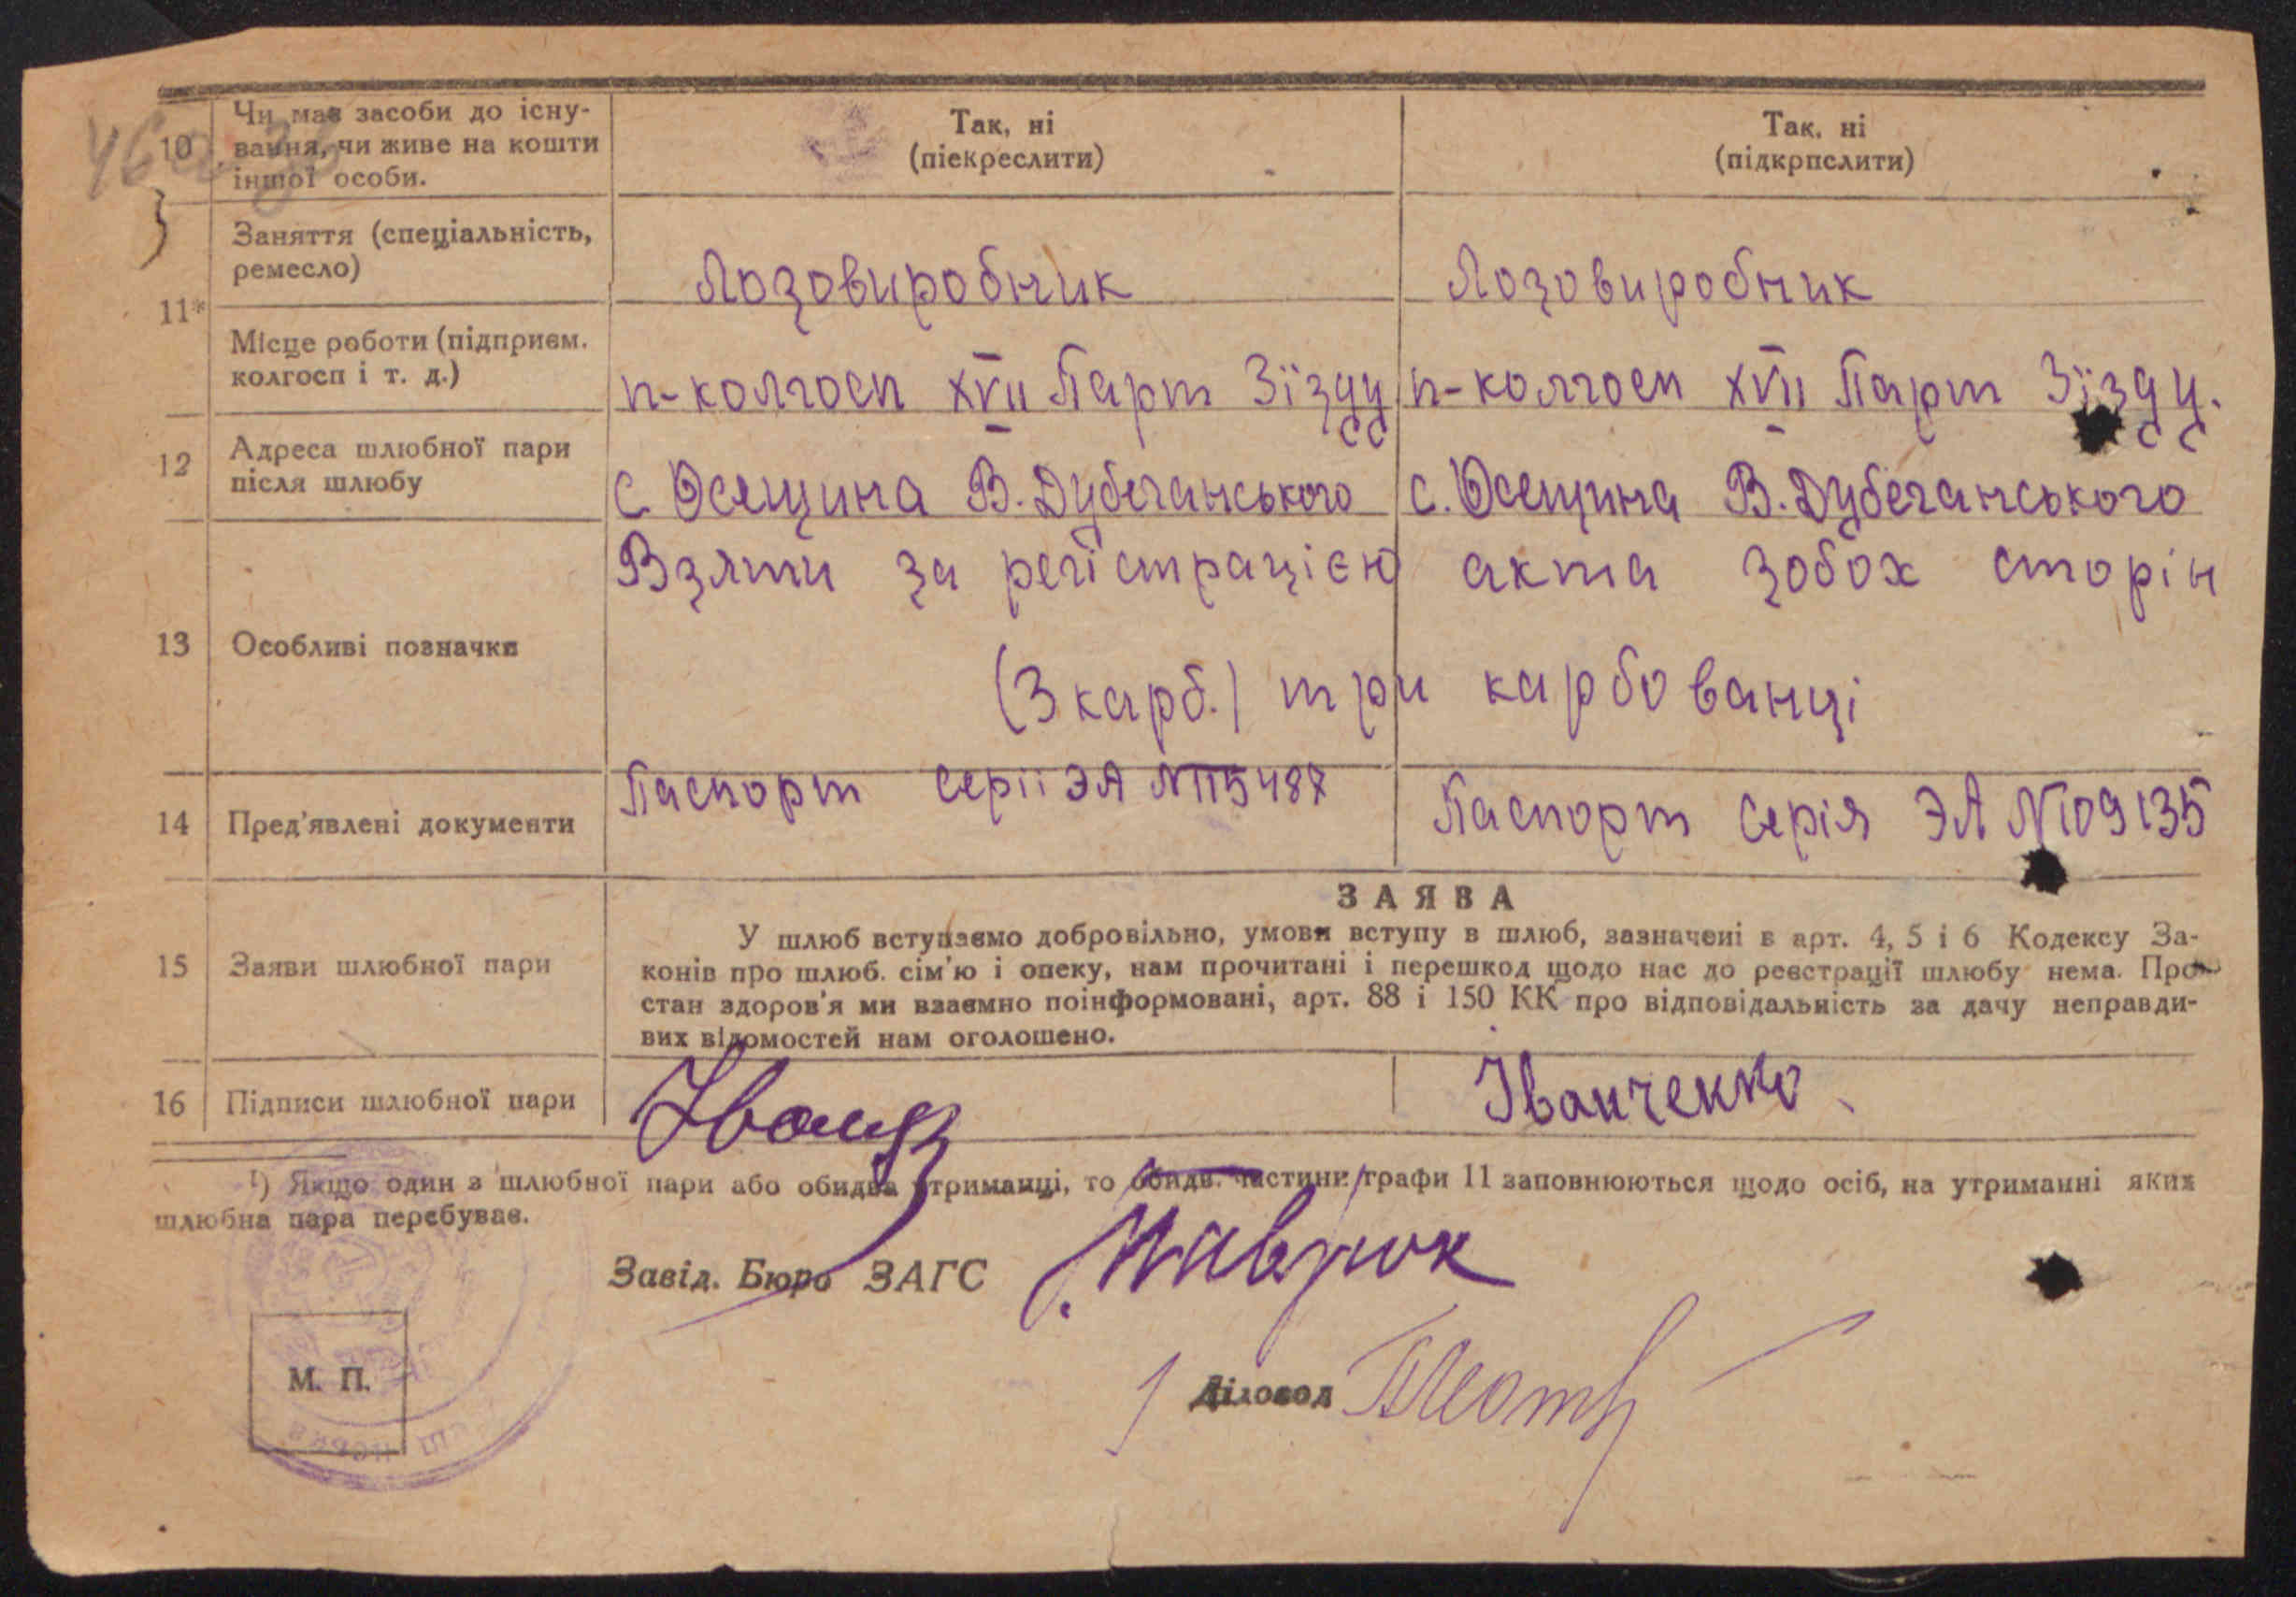 10 Чи має засоби до існу-
вання, чи живе на кошти
іншої особи.
Так, ні
(піекреслити)
Так, ні
(підкрпслити)
11*
Заняття (спеціальність,
ремесло)
Лозовиробник
Лозовиробник
Місце роботи (підприєм.
колгосп і т. д.)
п-колгосп XVII Парт Зїзду
п-колгосп XVII Парт Зїзду.
12 Адреса шлюбної пари
після шлюбу
с. Осещина В. Дубечанського
с. Осещина В. Дубечанського
13 Особливі позначки
Взяти за регістрацією акта зобох сторін
(3 карб.) три карбованці
14 Пред'явлені документи
Паспорт серіі ЭА №115487
Паспорт Серія ЭА №109135
15 Заяви шлюбної пари
ЗАЯВА
У шлюб вступаємо добровільно, умови вступу в шлюб, зазначені в арт. 4, 5 і 6 Кодексу За-
конів про шлюб. сім'ю і опеку, нам прочитані і перешкод щодо нас до реєстрації шлюбу нема. Про
стан здоров'я ми взаємно поінформовані, арт. 88 і 150 КК про відповідальність за дачу неправди-
вих відомостей нам оголошено.
16 Підписи шлюбної пари
Іванченко
¹) Якщо один з шлюбної пари або обидва утриманці, то обидв. частини графи 11 заповнюються щодо осіб, на утриманні яких
шлюбна пара перебуває.
Завід. Бюро ЗАГС
М. П.
Діловод